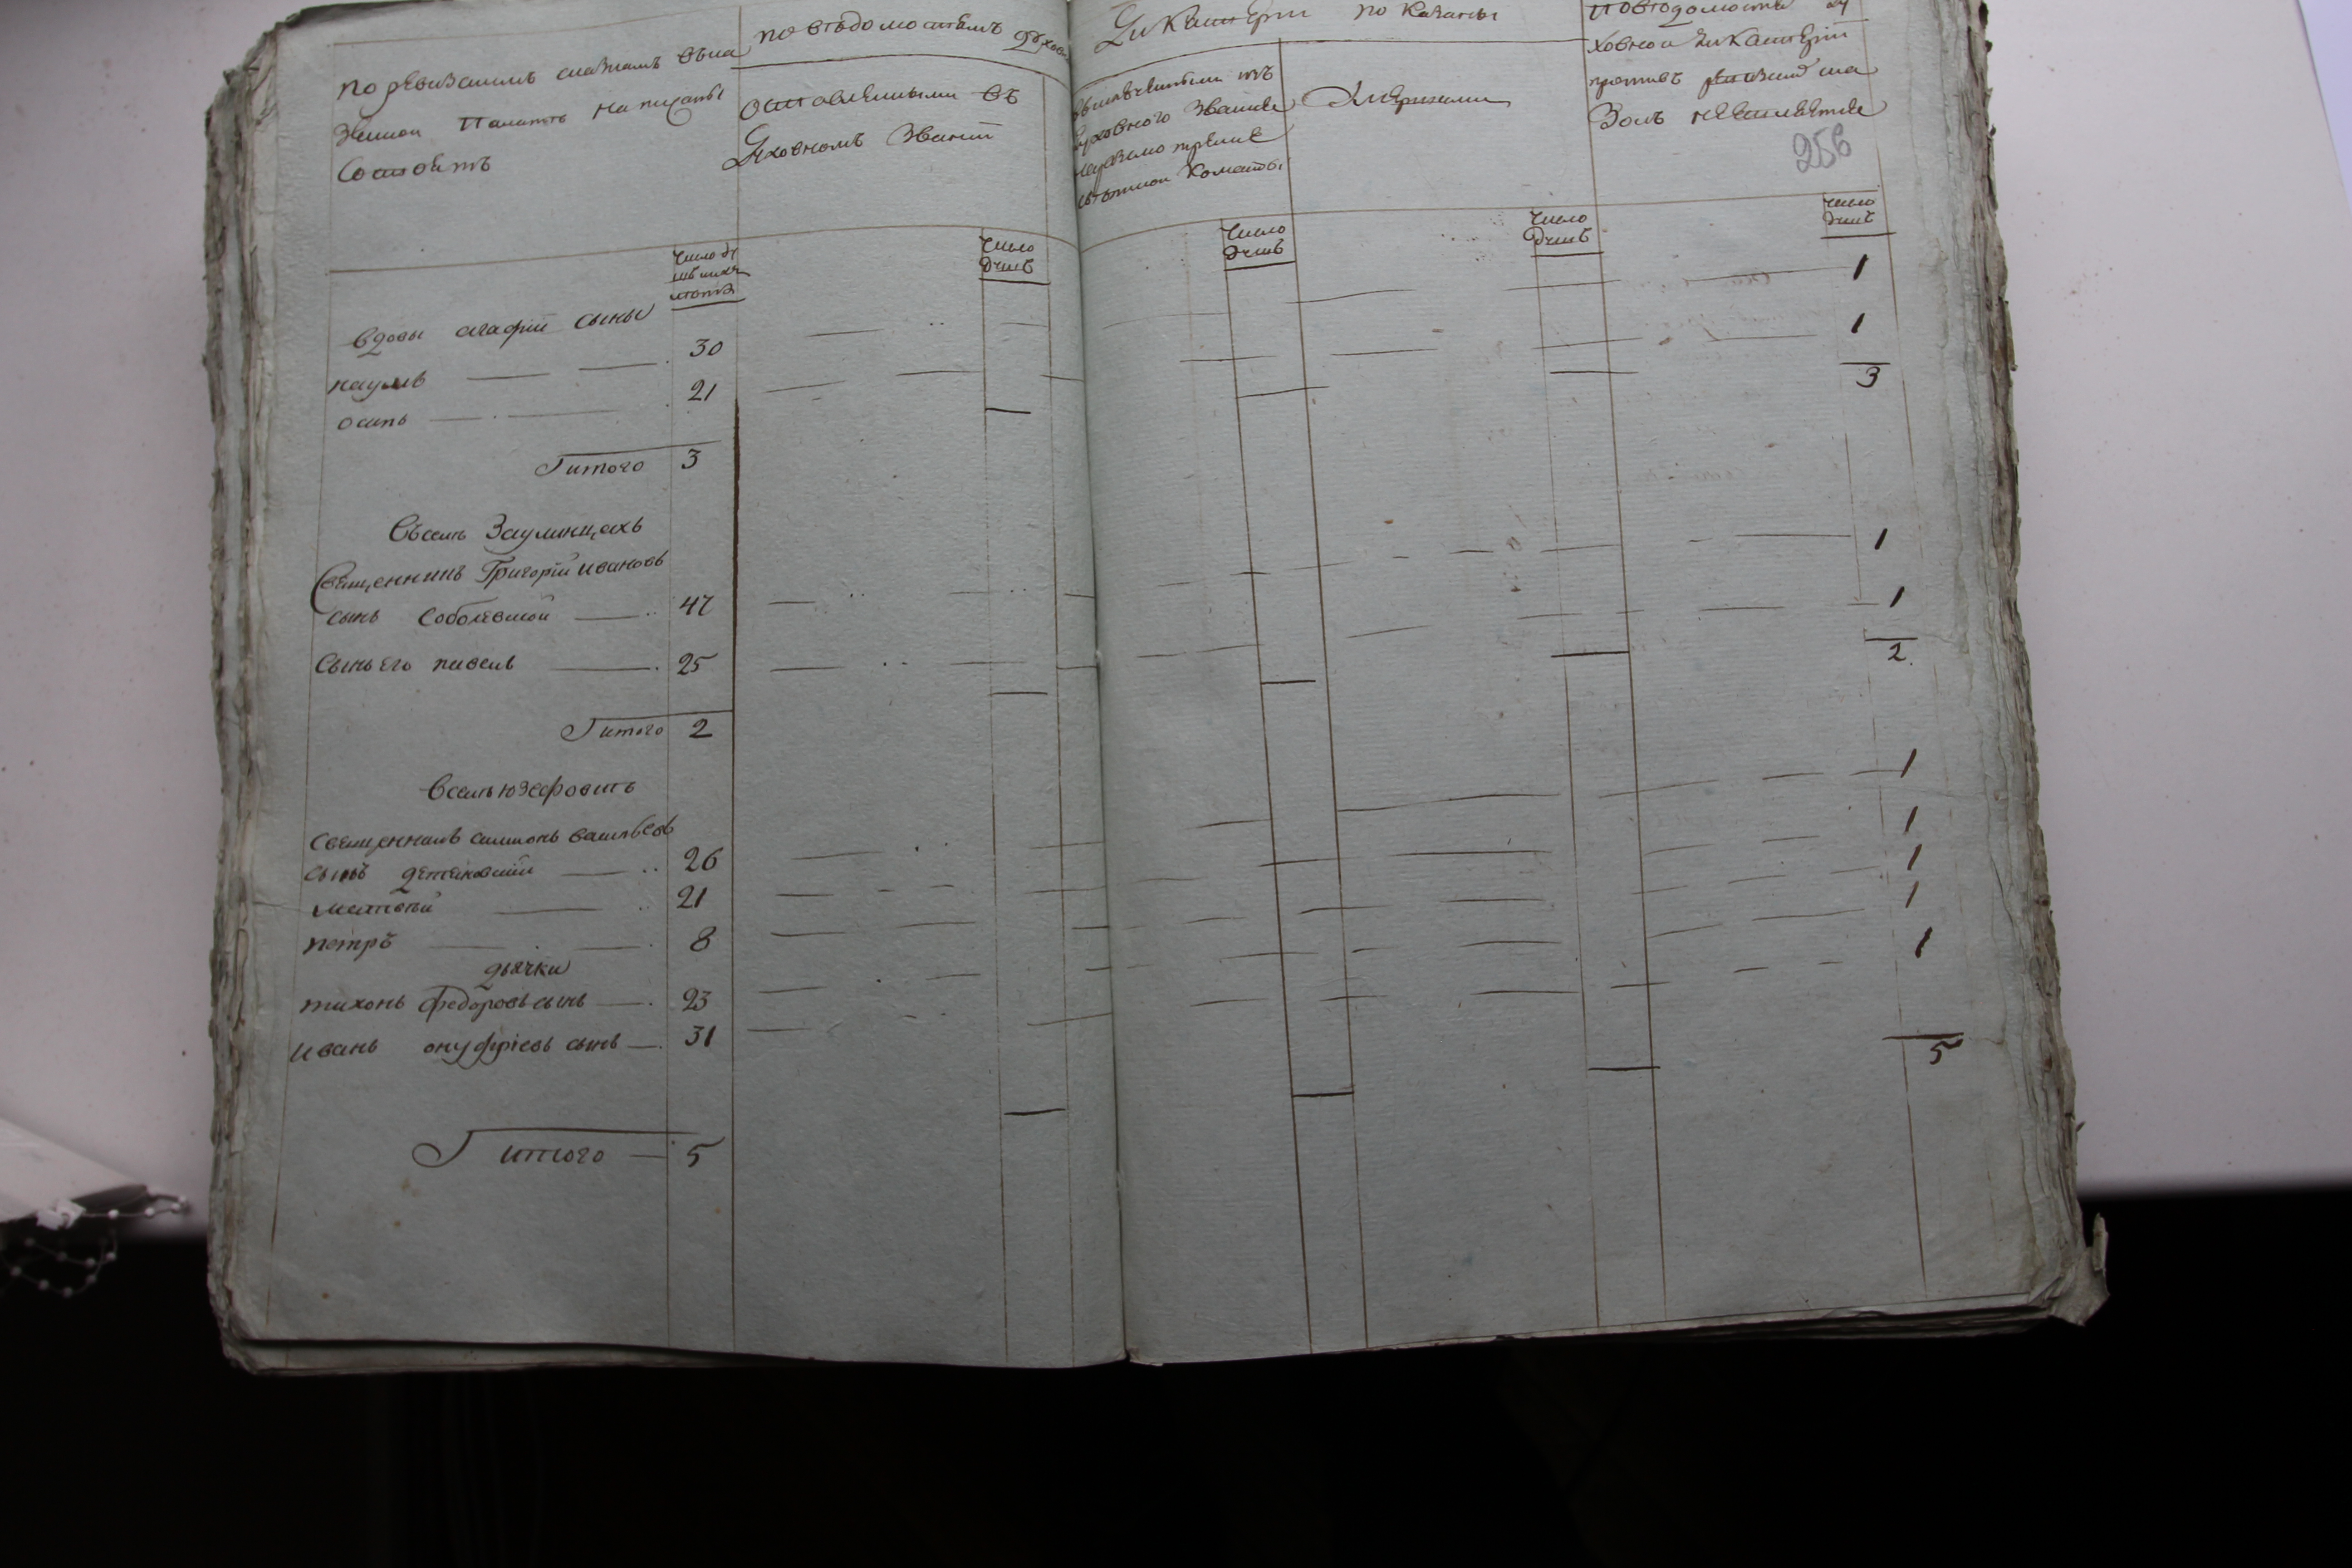 по ревизскимъ сказкамъ въка
зенной палатъ написаны
состоитъ
по въдомостямъ духов
оставленными въ
Духовномъ званіи
Дикастеріи показаны
духовного званія
команды
Умершими
по въдомости ду
ховной дикастеріи
противъ ревизіи ска
зокъ неявляется
256
число ду
число
душъ
число
душъ
число
душъ
число
душъ
вдовы агафіи сыны
наумъ 30 1
осипъ 21 1
Іитого 3 3
Въселъ Заулинцахъ
Священникъ Григорій ивановъ
сынъ Соболевской 47 1
Сынъ его павелъ 25 1
Іитого 2 2
Вселъ юзефовкъ
Священникъ симионъ васильевъ
сынъ 26 1
матвъй 21 1
петръ 8 1
дьячки
тихонъ федоровъ сынъ 23 1
Иванъ онуфріевъ сынъ 31 1
Іитого 5 5